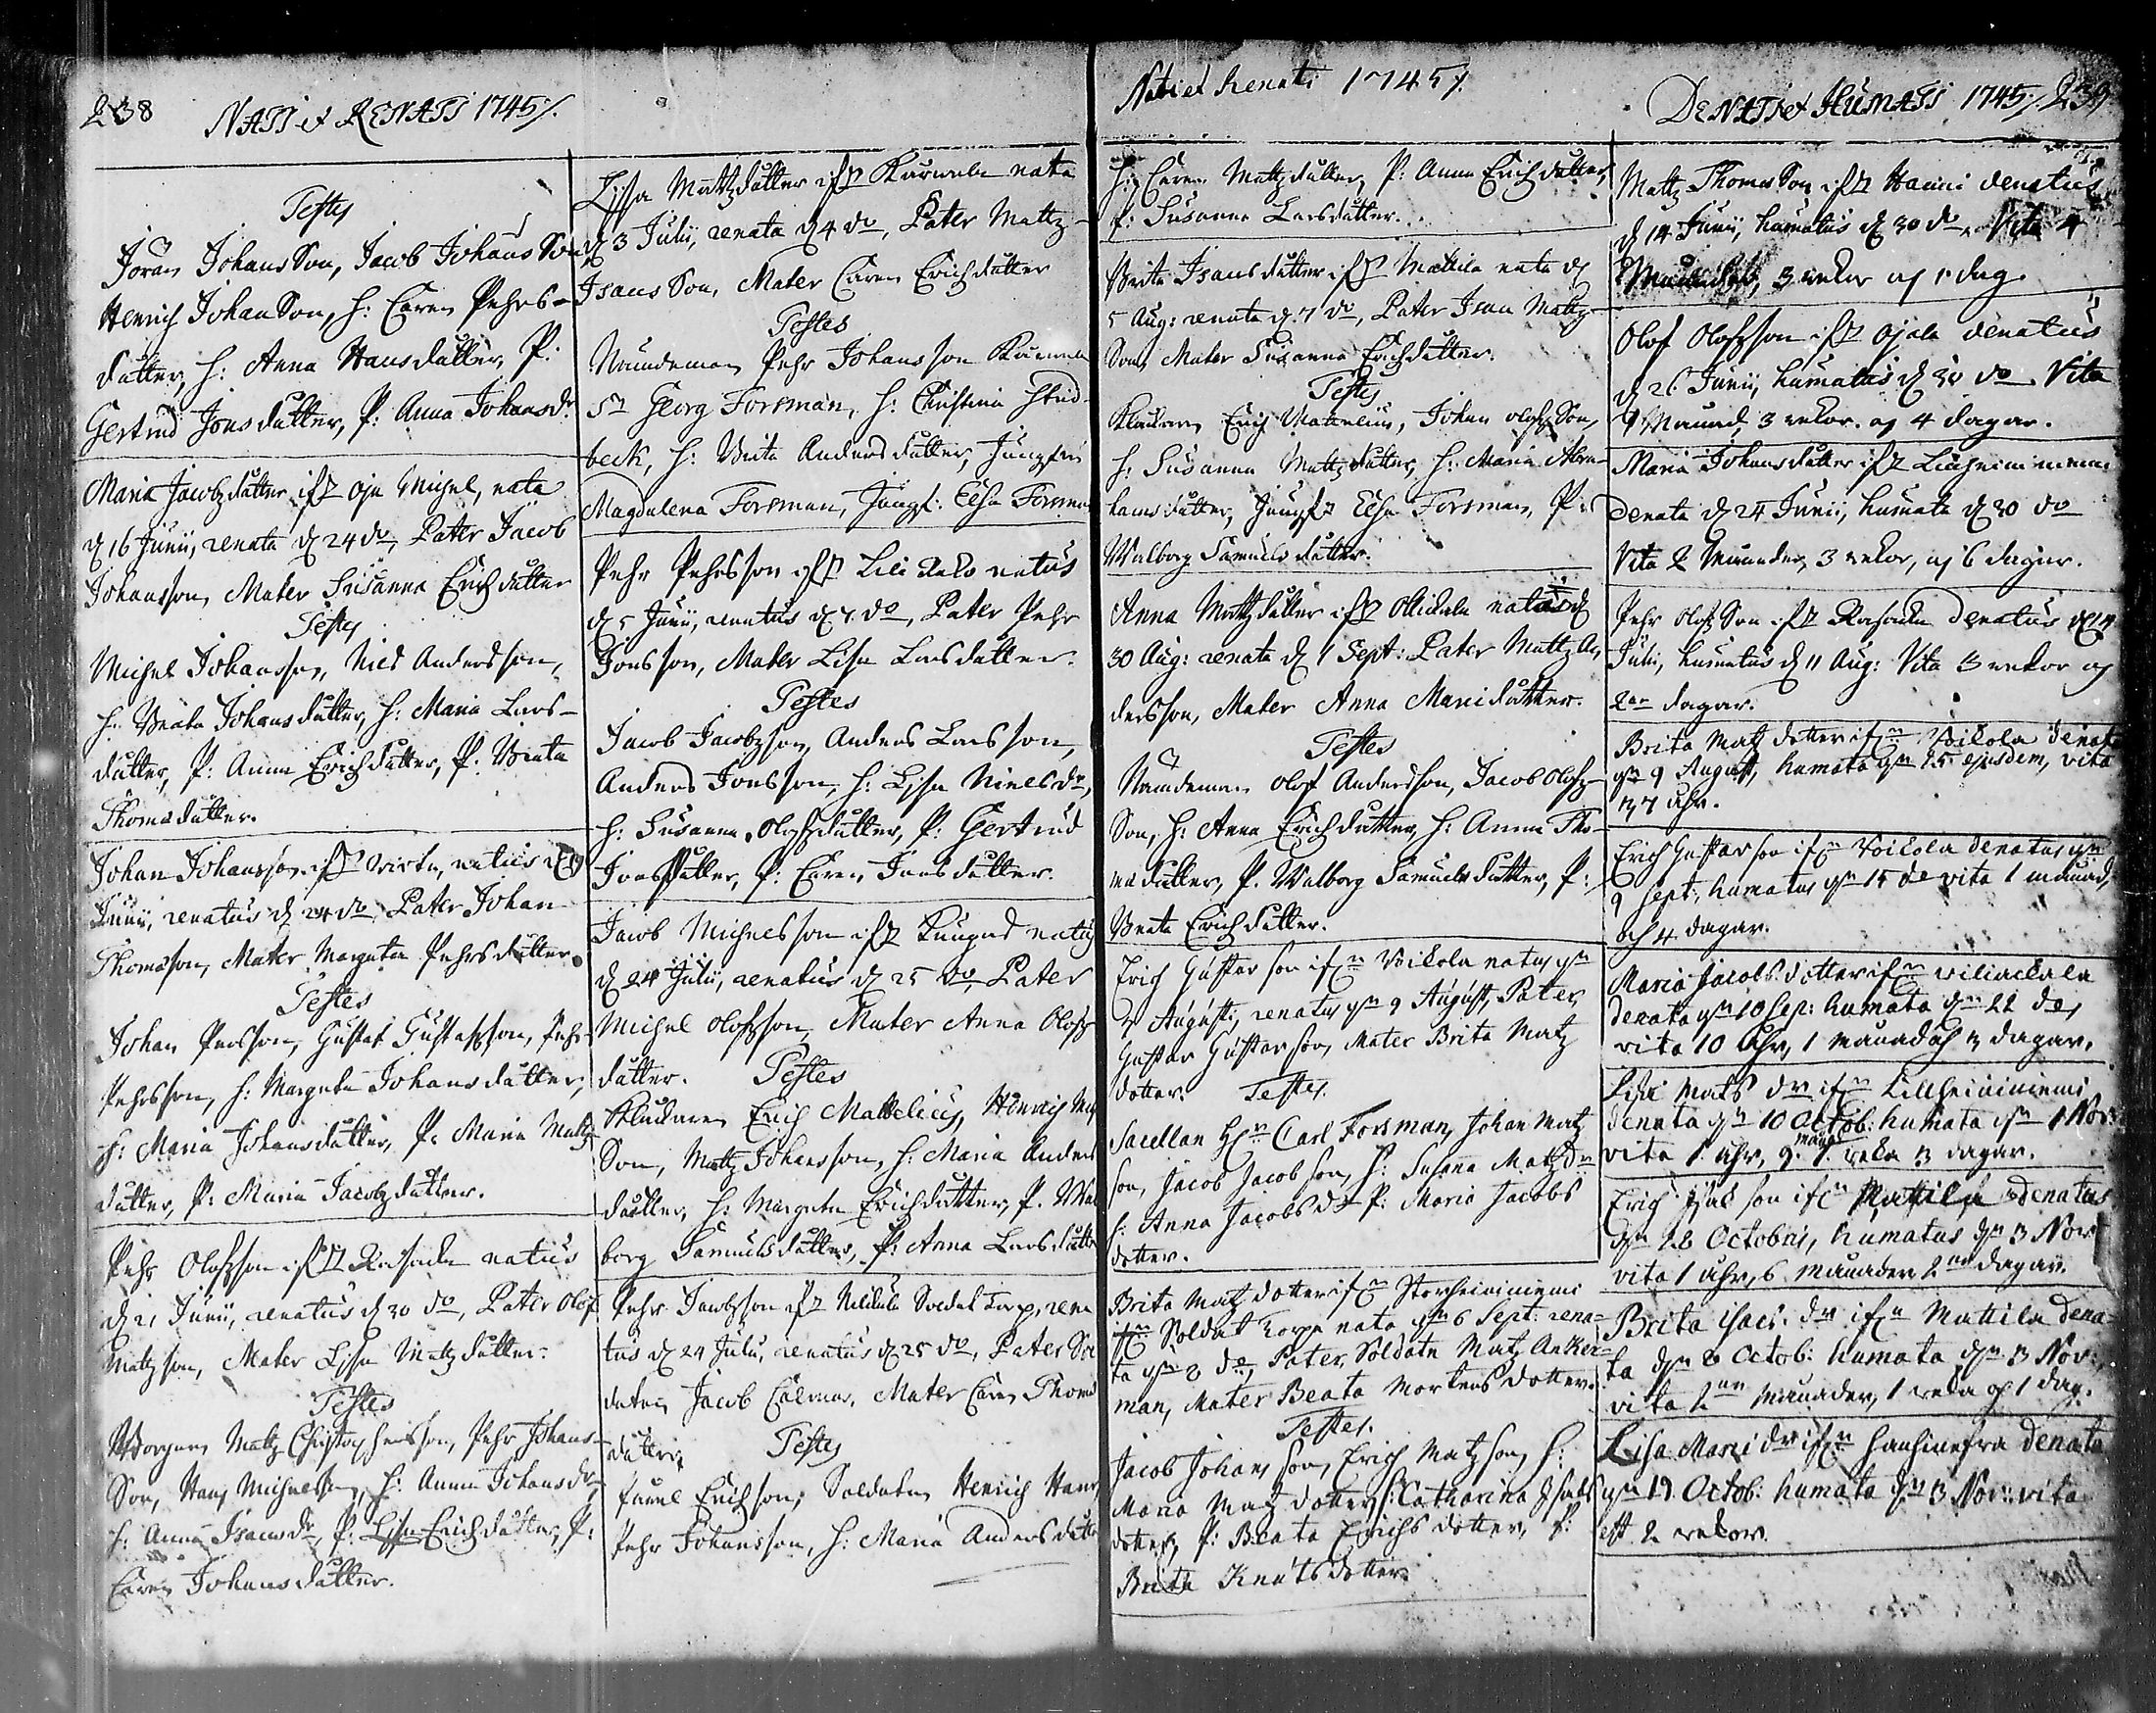 238 NATI et RENATI 1745/.
Testes
Jöran Johans Son, Jacob Johans Son
Henrich Johan Son, H: Caren Pehrs-
dutter, H: Anna Hansdutter, P:
Gertrud Jönsdutter, P: Anna Johansdr
Maria Jacobsdutter ifrn Oja Michel, nata
d 16 Junii, renata d 24 do, Pater Jacob
Johansson, Mater Susanna Erichdutter
Testes
Michel Johansson, Nils Andersson,
H: Beata Johansdutter, H: Maria Lars-
dutter, P: Anna Erichdutter, P: Beata
Thomasdutter.
Johan Johansson ifrn natus d
Junii, renatus d 24 do, Pater Johan
Thomasson, Mater Margeta Pehrsdutter.
Testes
Johan Persson, Gustaf Gustafsson, Pehr
Pehrsson, H: Margeta Johansdutter,
H: Maria Johansdutter, P: Maria Matz-
dutter, P: Maria Jacobzdutter.
Pehr Olofsson ifrn natus
d 21 Junii, renatus d 30 do, Pater Olof
Matzson, Mater Lisa Matzdutter.
Testes
Matz Christophersson, Pehr Johans-
Son, Hans Michelsson, H: Anna Johansdr,
H: Anna Isacsdr, P: Lisa Erichdutter, P:
Caren Johansdutter.
Lissa Mattzdutter ifrn nata
d 3 Julii, renata d 4 do, Pater Mattz-
Isacs Son, Mater Caren Erichdutter
Testes
Nämdeman Pehr Johansson
Sr Georg Forsman, H: Christina
beck, H: Brita Andersdutter, Jungfru
Magdalena Forsman, Jungf: Elsa Forsman
Pehr Pehrsson ifrn Lill natus
d 5 Junii, renatus d 7 do, Pater Pehr
Jönsson, Mater Lisa Larsdutter.
Testes
Jacob Jacobzson, Anders Larsson,
Anders Jönsson, H: Lisa Nielsdr,
H: Susanna Olofsdutter, P: Gertrud
Jönsdutter, P: Caren Jönsdutter.
Jacob Michelsson ifrn natus
d 24 Julii, renatus d 25 do, Pater
Michel Olofsson, Mater Anna Olofs
dutter. Testes
Klockaren Erich Mattelius, Henrich
Son, Mattz Johansson, H: Maria Anders
dutter, H: Margeta Erichdutter, P. Wal
borg Samuelsdutter, P: Anna Larsdutter
Pehr Jacobsson ifrn Soldat Torp,
tus d 24 Julii, renatus d 25 do, Pater Sol
daten Jacob Calmar, Mater Caren Thomas
dutter. Testes
Erichson, Soldaten Henrich
Pehr Johansson, H: Maria Andersdutter
Nati et Renati 1745/.
H: Caren Mattzdutter, P: Anna Erichdutter,
P: Susanna Larsdutter.
Brita Isacsdutter ifrn Mattila nata d
5 Aug: renata d. 7 do, Pater Isac Mattz-
Son, Mater Susanna Erichdutter.
Testes
Klockaren Erich Matthelius, Johan Olofs Son,
H: Susanna Mattzdutter, H: Maria Abra-
hamsdutter, Jungfr Elsa Forsman, P:
Walborg Samuelsdutter.
Anna Mattzdutter ifrn nata d
30 Aug: renata d 1 Sept: Pater Mattz An
dersson, Mater Anna Maridutter.
Testes
Nämdeman Olof Andersson, Jacob Olofs-
Son, H: Anna Erichdutter, H: Anna Tho-
masdutter, P. Walborg Samuelsdutter, P:
Beata Erichdutter.
Erich Gustafson ifrn Voikola natus dn
7 Augusti, renatus dn 9 August, Pater
Gustav Gustavson, Mater Brita Matz
dotter. Testes.
Sacellan Hn Carl Forsman, Johan Matz
son, Jacob Jacobson, H: Susana Matzdr
H: Anna Jacobsdr P: Maria Jacobs
dotter.
Brita Matzdotter ifrn Storheininiemi
ifrn Soldat torpa nata dn 6 Sept: rena-
ta dn 8 do, Pater, Soldatn Matz Anker-
man, Mater Beata Mortensdotter.
Testes.
Jacob Johansson, Erich Matzson, H:
Maria Matzdotter, H: Catharina Isacs
dotter, P: Beata Erichsdotter, P:
Brita Knutsdotter.
DENATI et HUMATI 1745/. 239
Mattz Thomas Son ifrn Hanni denatus
d 14 Junii, humatus d 30 do, Vita 4
Månader, 3 wekor oj 1 dag.
Olof Olofsson ifrn Ojala denatus
d 26 Junii, humatus d 30 do Vita
1 Månad, 3 wekor oj 4 dagar.
Maria Johansdutter ifrn
Denata d 24 Junii, humata d 30 do
Vita 2 Månader, 3 wekor, oj 6 dagar.
Pehr Olofs Son ifrn denatus d 14
Julii, humatus d 11 Aug: Vita 3 wekor oj
2ne dagar.
Brita Matzdotter ifrn Voikola denata
dn 9 August, humata dn 25 ejusdem, vita
77 åhr.
Erich Gustavson ifrn Voikola denatus dn
9 Sept: humatus dn 15 do vita 1 månad,
och 4 dagar.
Maria Jacobsdotter ifrn Wiliackala
denata dn 10 Sep: humata dn 22 do,
vita 10 åhr, 1 månad oh 3 dagar.
Lisa Matsdr ifrn Lillheininiemi
denata dn 10 Octob: humata dn 1 Nov:
vita 1 åhr, 9. månad 1. weka 3 dagar.
Erich Isacson ifrn Mattila denatus
dn 28 Octobris, humatus dn 3 Nov:
vita 1 åhr, 6 månader 2ne dagar.
Brita Isacsdr ifrn Mattila dena-
ta dn 8 Octob: humata dn 3 Nov:,
vita 2ne månader, 1 weka oh 1 dag.
Lisa Maridr ifrn denata
dn 19 Octob: humata dn 3 Nov: vita
est 2 wekor.